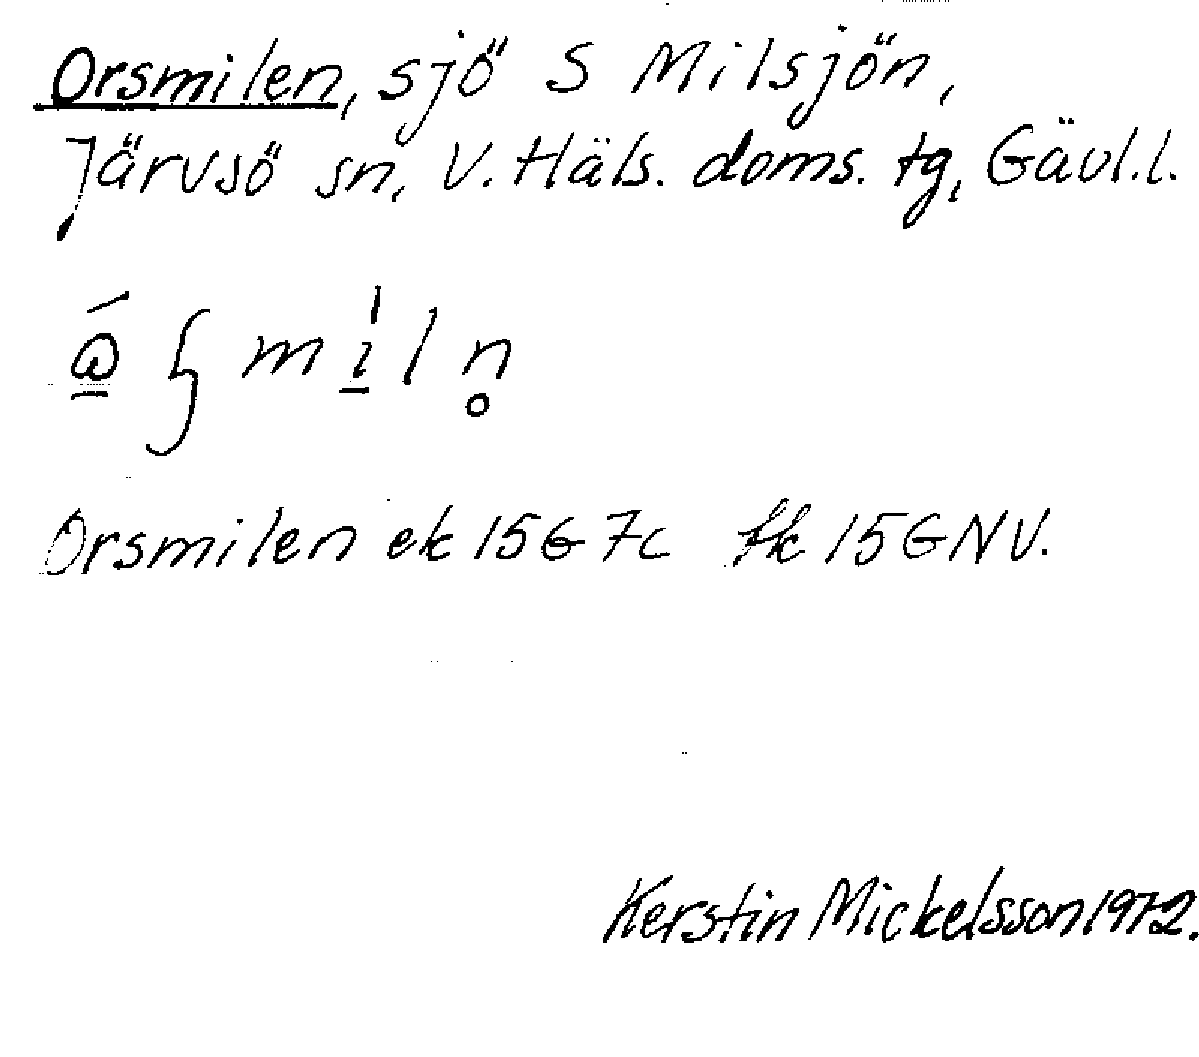 Orsmilen, sjö S Milsjön,
Järvsö sn, V. Häls. doms. tg, Gävl.l.
Orsmilen ek 15G 7c fk 15G NV.
Kerstin Mickelsson 1972.